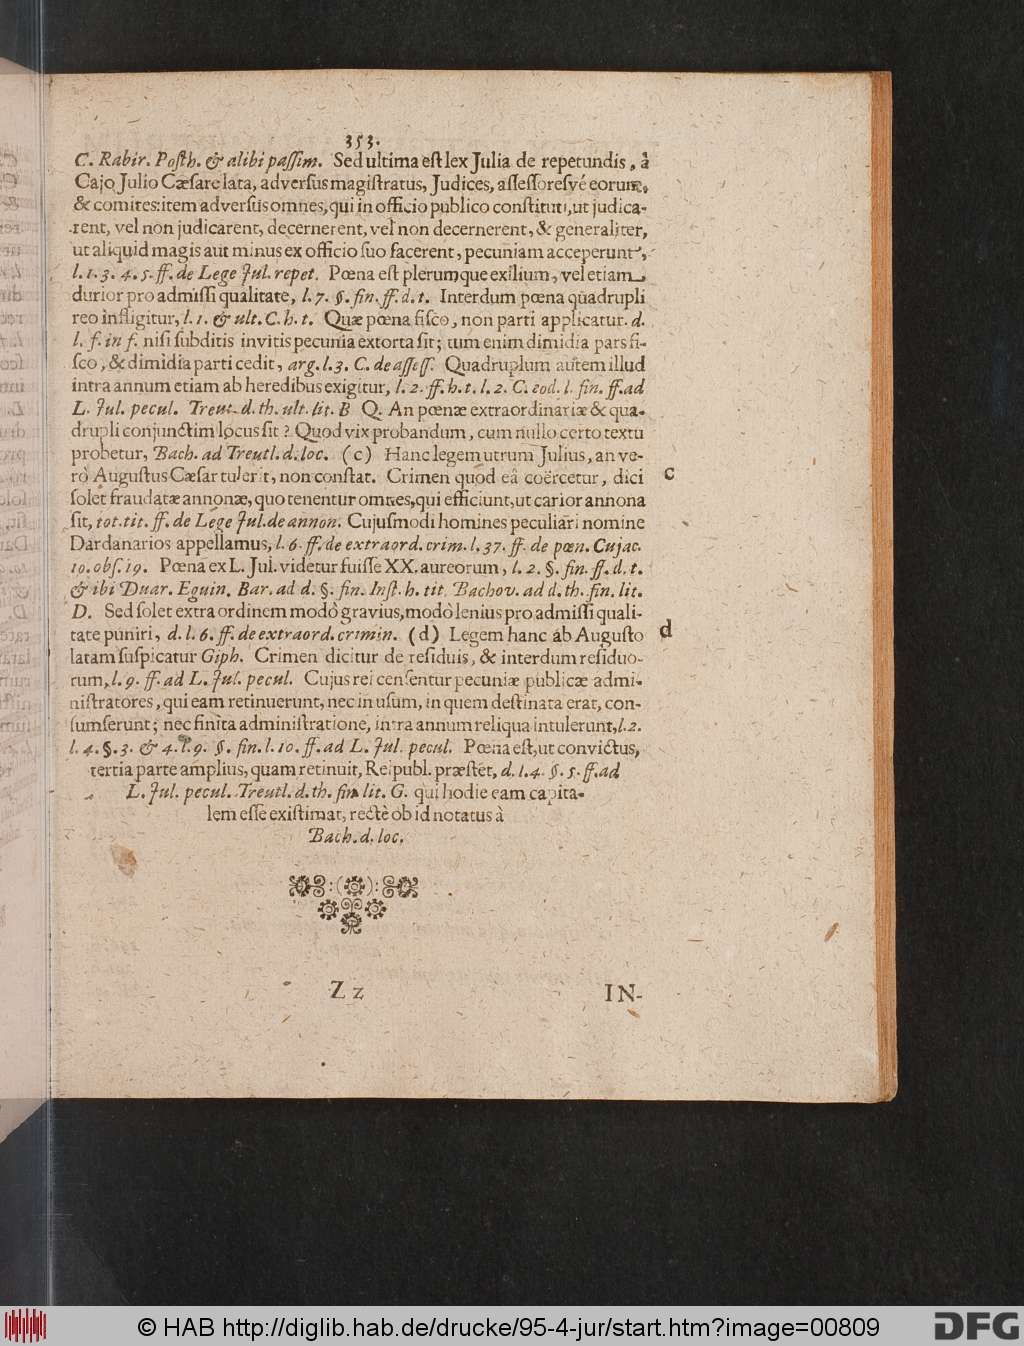 353.
C. Rabir. Posth. & alibi passim. Sed ultima est lex Julia de repetundis, à
Cajo Julio Cæsare lata, adversus magistratus, Judices, assessoresvé eorum,
& comites: item adversus omnes, qui in officio publico constituti, ut judica-
rent, vel non judicarent, decernerent, vel non decernerent, & generaliter,
ut aliquid magis aut minus ex officio suo facerent, pecuniam acceperunt,
l. 1. 3. 4. 5. ff. de Lege Jul. repet. Pœna est plerumque exilium, vel etiam
durior pro admissi qualitate, l. 7. §. fin. ff. d. t. Interdum pœna quadrupli
reo infligitur, l. 1. & ult. C. h. t. Quæ pœna fisco, non parti applicatur. d.
l. f. in f. nisi subditis invitis pecunia extorta sit; tum enim dimidia pars fi-
sco, & dimidia parti cedit, arg. l. 3. C. de assess. Quadruplum autem illud
intra annum etiam ab heredibus exigitur, l. 2. ff. h. t. l. 2. C. eod. l. fin. ff. ad
L. Jul. pecul. Treut. d. th. ult. lit. B Q. An pœnæ extraordinariæ & qua-
drupli conjunctim locus sit? Quod vix probandum, cum nullo certo textu
probetur, Bach. ad Treutl. d. loc. (c) Hanc legem utrum Julius, an ve-
rò Augustus Cæsar tulerit, non constat. Crimen quod eâ coërcetur, dici
c
solet fraudatæ annonæ, quo tenentur omnes, qui efficiunt, ut carior annona
sit, tot. tit. ff. de Lege Jul. de annon. Cujusmodi homines peculiari nomine
Dardanarios appellamus, l. 6. ff. de extraord. crim. l. 37. ff. de pœn. Cujac.
10. obs. 19. Pœna ex L. Jul. videtur fuisse XX. aureorum, l. 2. §. fin. ff. d. t.
& ibi Duar. Eguin. Bar. ad d. §. fin. Inst. h. tit. Bachov. ad d. th. fin. lit.
D. Sed solet extra ordinem modò gravius, modò lenius pro admissi quali-
tate puniri, d. l. 6. ff. de extraord. crimin. (d) Legem hanc ab Augusto
d
latam suspicatur Giph. Crimen dicitur de residuis, & interdum residuo-
rum, l. 9. ff. ad L. Jul. pecul. Cujus rei censentur pecuniæ publicæ admi-
nistratores, qui eam retinuerunt, nec in usum, in quem destinata erat, con-
sumserunt; nec finita administratione, intra annum reliqua intulerunt, l. 2.
l. 4. §. 3. & 4. l. 9. §. fin. l. 10. ff. ad L. Jul. pecul. Pœna est, ut convictus,
tertia parte amplius, quam retinuit, Reipubl. præstet, d. l. 4. §. 5. ff. ad
L. Jul. pecul. Treutl. d. th. fin. lit. G. qui hodie eam capita-
lem esse existimat, rectè ob id notatus à
Bach. d. loc.
Zz
IN-
© HAB http://diglib.hab.de/drucke/95-4-jur/start.htm?image=00809
DFG